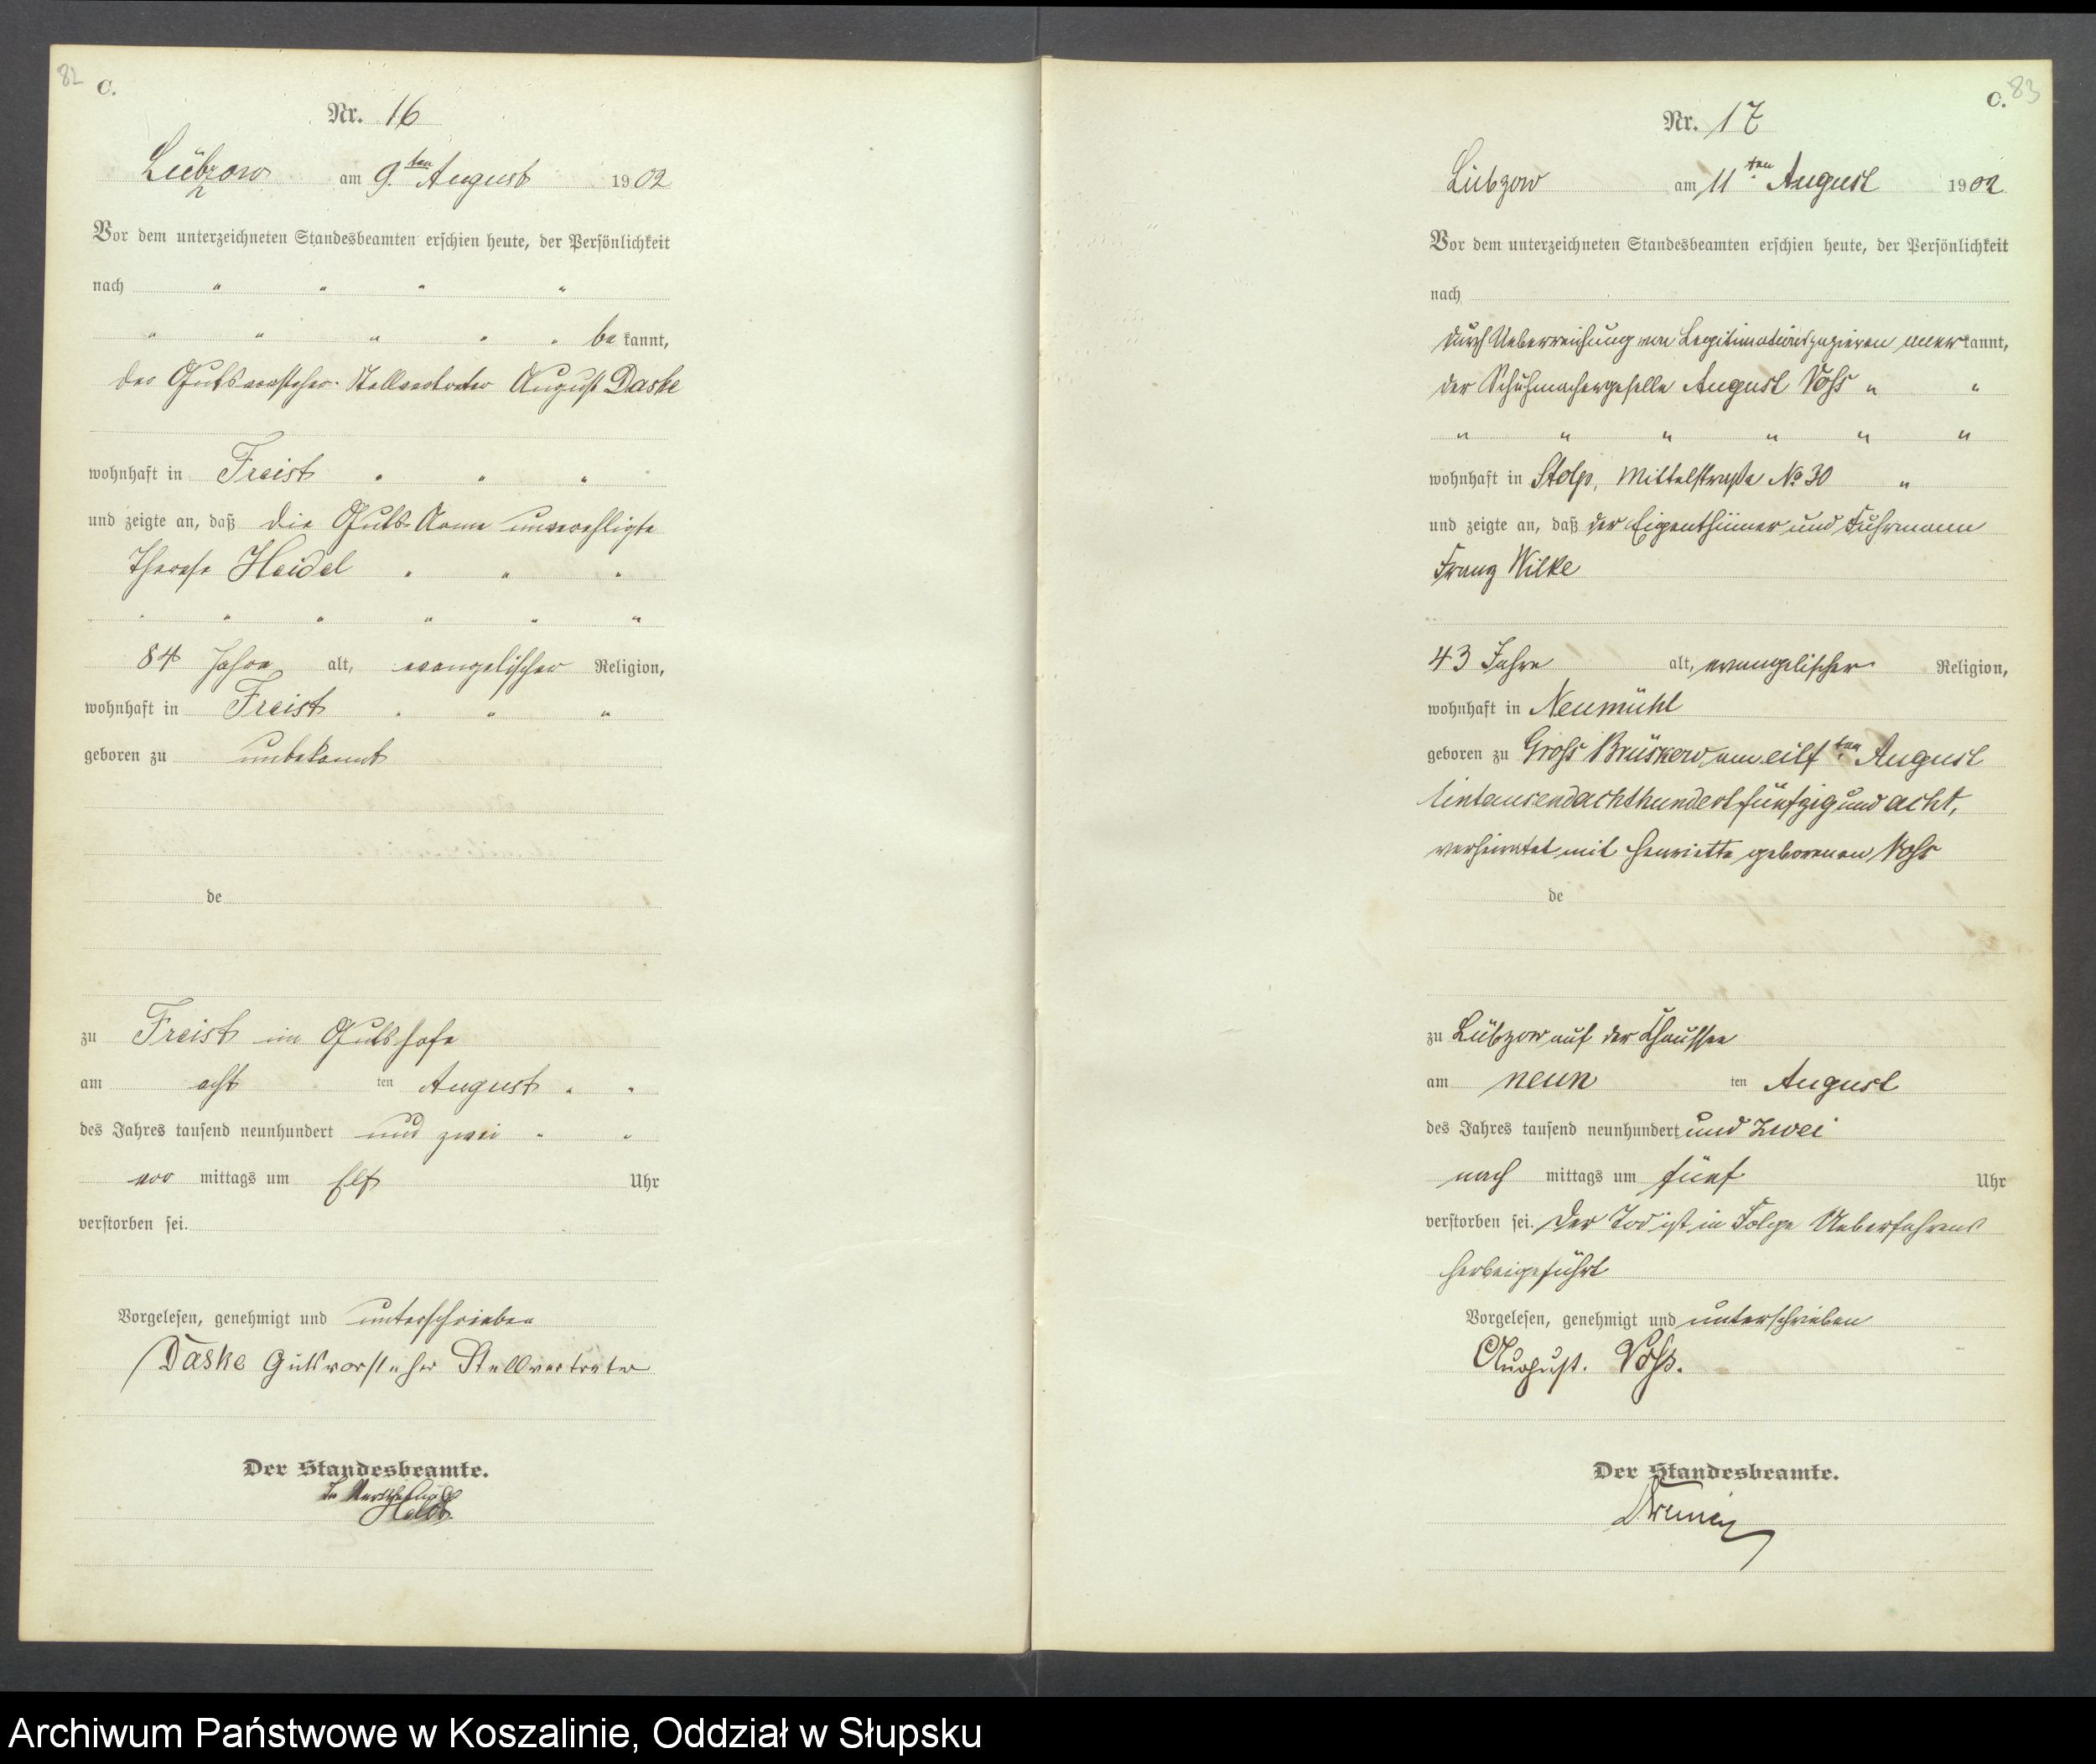 82
C.
Nr. 16
Lübzow am 9.ten August 1902
Vor dem unterzeichneten Standesbeamten erschien heute, der Persönlichkeit
nach " " " "
" " " " " be kannt,
der Gutsvorsteher-Stellvertreter August Daske
wohnhaft in Freist " " "
und zeigte an, daß die Guts-Arme unverehligte
Therese Heidel " " "
" " " " " "
84 Jahre alt, evangelischer Religion,
wohnhaft in Freist " " "
geboren zu unbekannt
de
zu Freist im Gutshofe
am acht ten August " "
des Jahres tausend neunhundert und zwei " "
vor mittags um Elf Uhr
verstorben sei.
Vorgelesen, genehmigt und unterschrieben
Daske Gutsvorsteher Stellvertreter
Der Standesbeamte.
In
83
C.
Nr. 17
Lübzow am 11ten August 1902
Vor dem unterzeichneten Standesbeamten erschien heute, der Persönlichkeit
nach
durch Ueberreichung von Legitimationspapieren anerkannt,
der Schuhmachergeselle August Voß " "
" " " " " "
wohnhaft in Stolp, Mittelstraße No 30 "
und zeigte an, daß der Eigenthümer und Fuhrmann
Franz Wilke
43 Jahre alt, evangelischer Religion,
wohnhaft in Neumühl
geboren zu Groß Brüskow, am eilften August
Eintausendachthundertfünfzig und acht,
verheiratet mit Henriette geborenen Voß
de
zu Lübzow auf der Chaussee
am neun ten August
des Jahres tausend neunhundert und zwei
nach mittags um fünf Uhr
verstorben sei. Der Tod ist in Folge Ueberfahrens
herbeigeführt
Vorgelesen, genehmigt und unterschrieben
August. Voß.
Der Standesbeamte.
Archiwum Państwowe w Koszalinie, Oddział w Słupsku